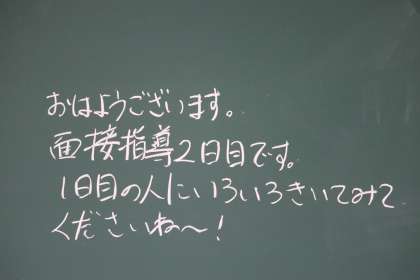 おはようございます。
面接指導2日目です。
1日目の人にいろいろきいてみて
くださいね〜!